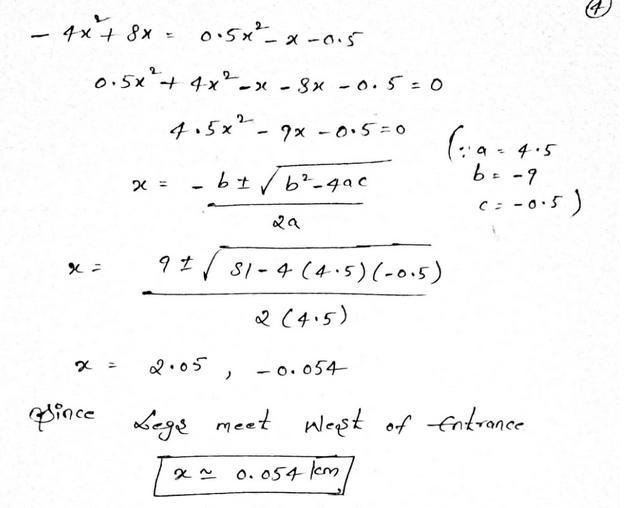 4
- 4x² + 8x = 0.5x² - x - 0.5
0.5x² + 4x² - x - 8x - 0.5 = 0
4.5x² - 9x - 0.5 = 0
(∵ a = 4.5
b = -9
c = -0.5)
x = -b ± √(b² - 4ac) / 2a
x = 9 ± √(81 - 4(4.5)(-0.5)) / 2(4.5)
x = 2.05, -0.054
Since Legs meet West of Entrance
x ≃ 0.054 km